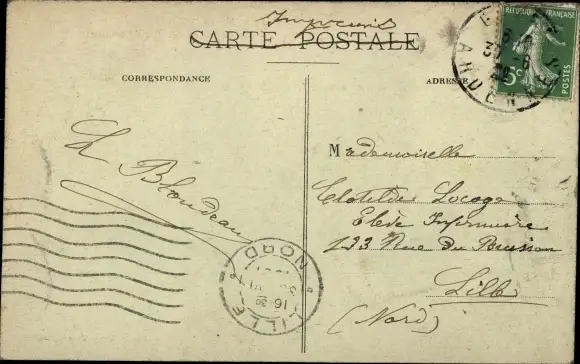 Imprimés
CARTE POSTALE
CORRESPONDANCE
ADRESSE
REPUBLIQUE FRANÇAISE
5c
POSTES
Mademoiselle
Clotilde Locoge
Elève Infirmière
123 Rue Du Buisson
Lille
(Nord)
Blondeau
LILLE
NORD